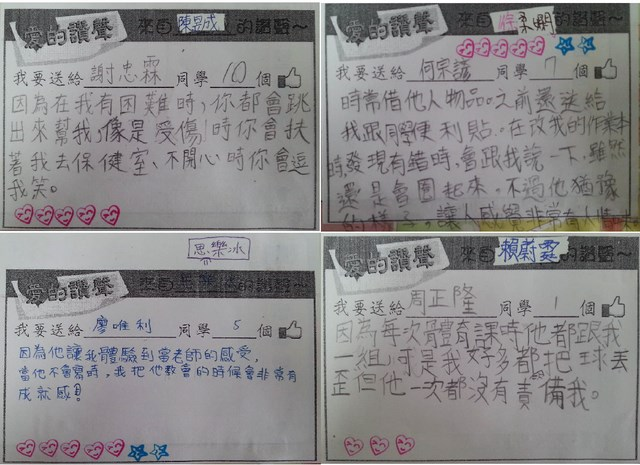 愛的讚聲
來自陳昱成的讚聲~
我要送給 謝忠霖 同學 10 個
因為在我有困難時,你都會跳
出來幫我,像是受傷時你會扶
著我去保健室、不開心時你會逗
我笑。
愛的讚聲
來自 柔嫻的讚聲~
我要送給 何宗諺 同學 7 個
時常借他人物品。之前還送給
我跟同學便利貼。在改我的作業本
時,發現有錯時,會跟我說一下,雖然
還是會圈起來。不過他猶豫
的樣子,讓人感覺非常有
愛的讚聲
思樂冰
來自 的讚聲~
我要送給 廖唯利 同學 5 個
因為他讓我體驗到當老師的感受,
當他不會寫時,我把他教會的時候會非常有
成就感!
愛的讚聲
來自賴蔚雯的讚聲~
我要送給 周正隆 同學 1 個
因為每次體育課時他都跟我
一組,可是我好多都把球丟
歪但他一次都沒有責備我。